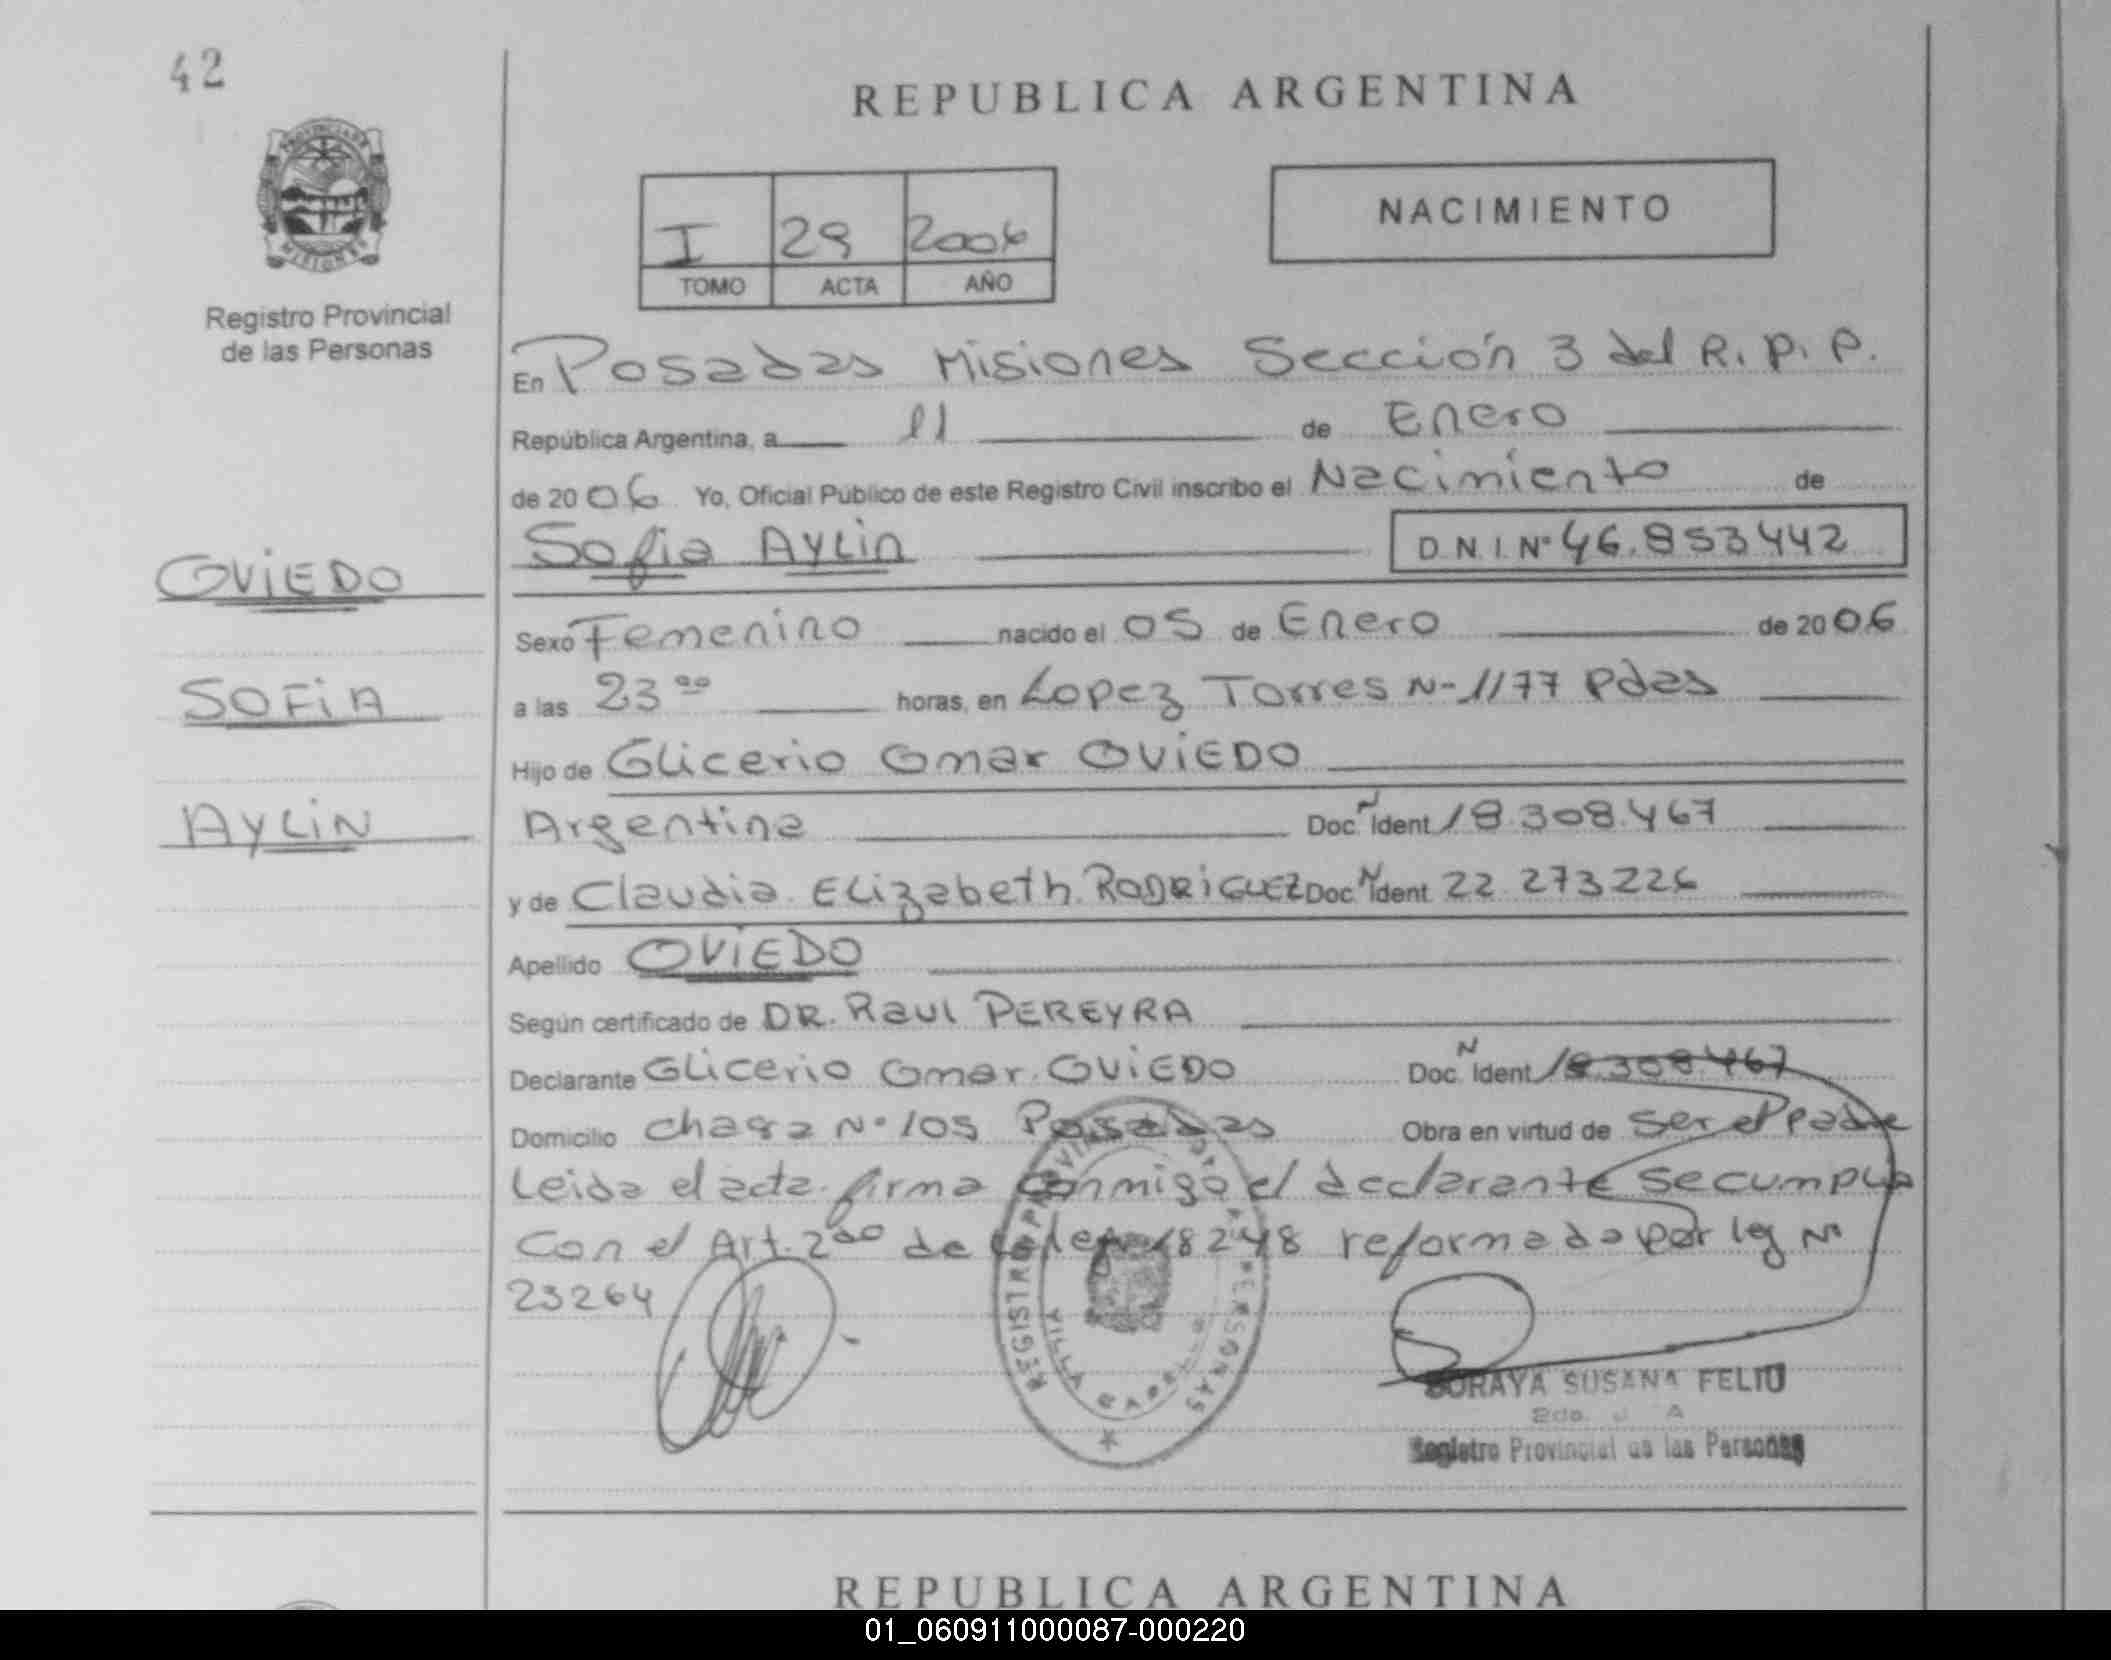 42
REPUBLICA ARGENTINA
PROVINCIA DE
MISIONES
Registro Provincial
de las Personas
I 29 2006
TOMO ACTA AÑO
NACIMIENTO
En Posadas Misiones Sección 3 del R.P.P.
República Argentina, a 11 de Enero
de 2006 Yo, Oficial Público de este Registro Civil inscribo el Nacimiento de
Sofia Aylin D.N.I. Nº 46.853442
OVIEDO
Sexo Femenino nacido el 05 de Enero de 2006
SOFIA
a las 23 ºº horas, en Lopez Torres N- 1177 Pdas
Hijo de Glicerio Omar OVIEDO
AYLIN
Argentina Doc. N Ident 18.308.467
y de Claudia Elizabeth RODRIGUEZ Doc. N Ident 22 273226
Apellido OVIEDO
Según certificado de DR. Raul PEREYRA
Declarante Glicerio Omar OVIEDO Doc. N Ident 18.308.467
Domicilio Chacra Nº 105 Posadas Obra en virtud de ser el Padre
Leida el acta firma conmigo el declarante se cumplio
Con el Art. 2do de la ley 18248 reformado por ley Nº
23264
REGISTRO PROVINCIAL DE LAS PERSONAS
VILLA
SORAYA SUSANA FELIU
2do.
Registro Provincial de las Personas
REPUBLICA ARGENTINA
01_060911000087-000220